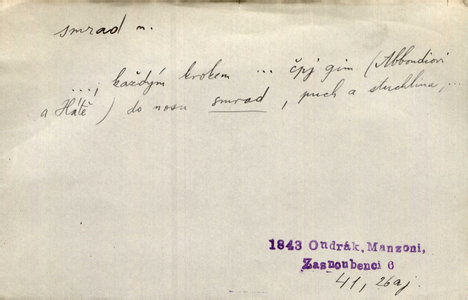 smrad m.
..., každým krokem ... čpj gim (Abbondiovi
a Hátě) do nosu smrad, puch a stuchlina, ...
1843 Ondrák, Manzoni,
Zasnoubenci 6
41, 26aj.